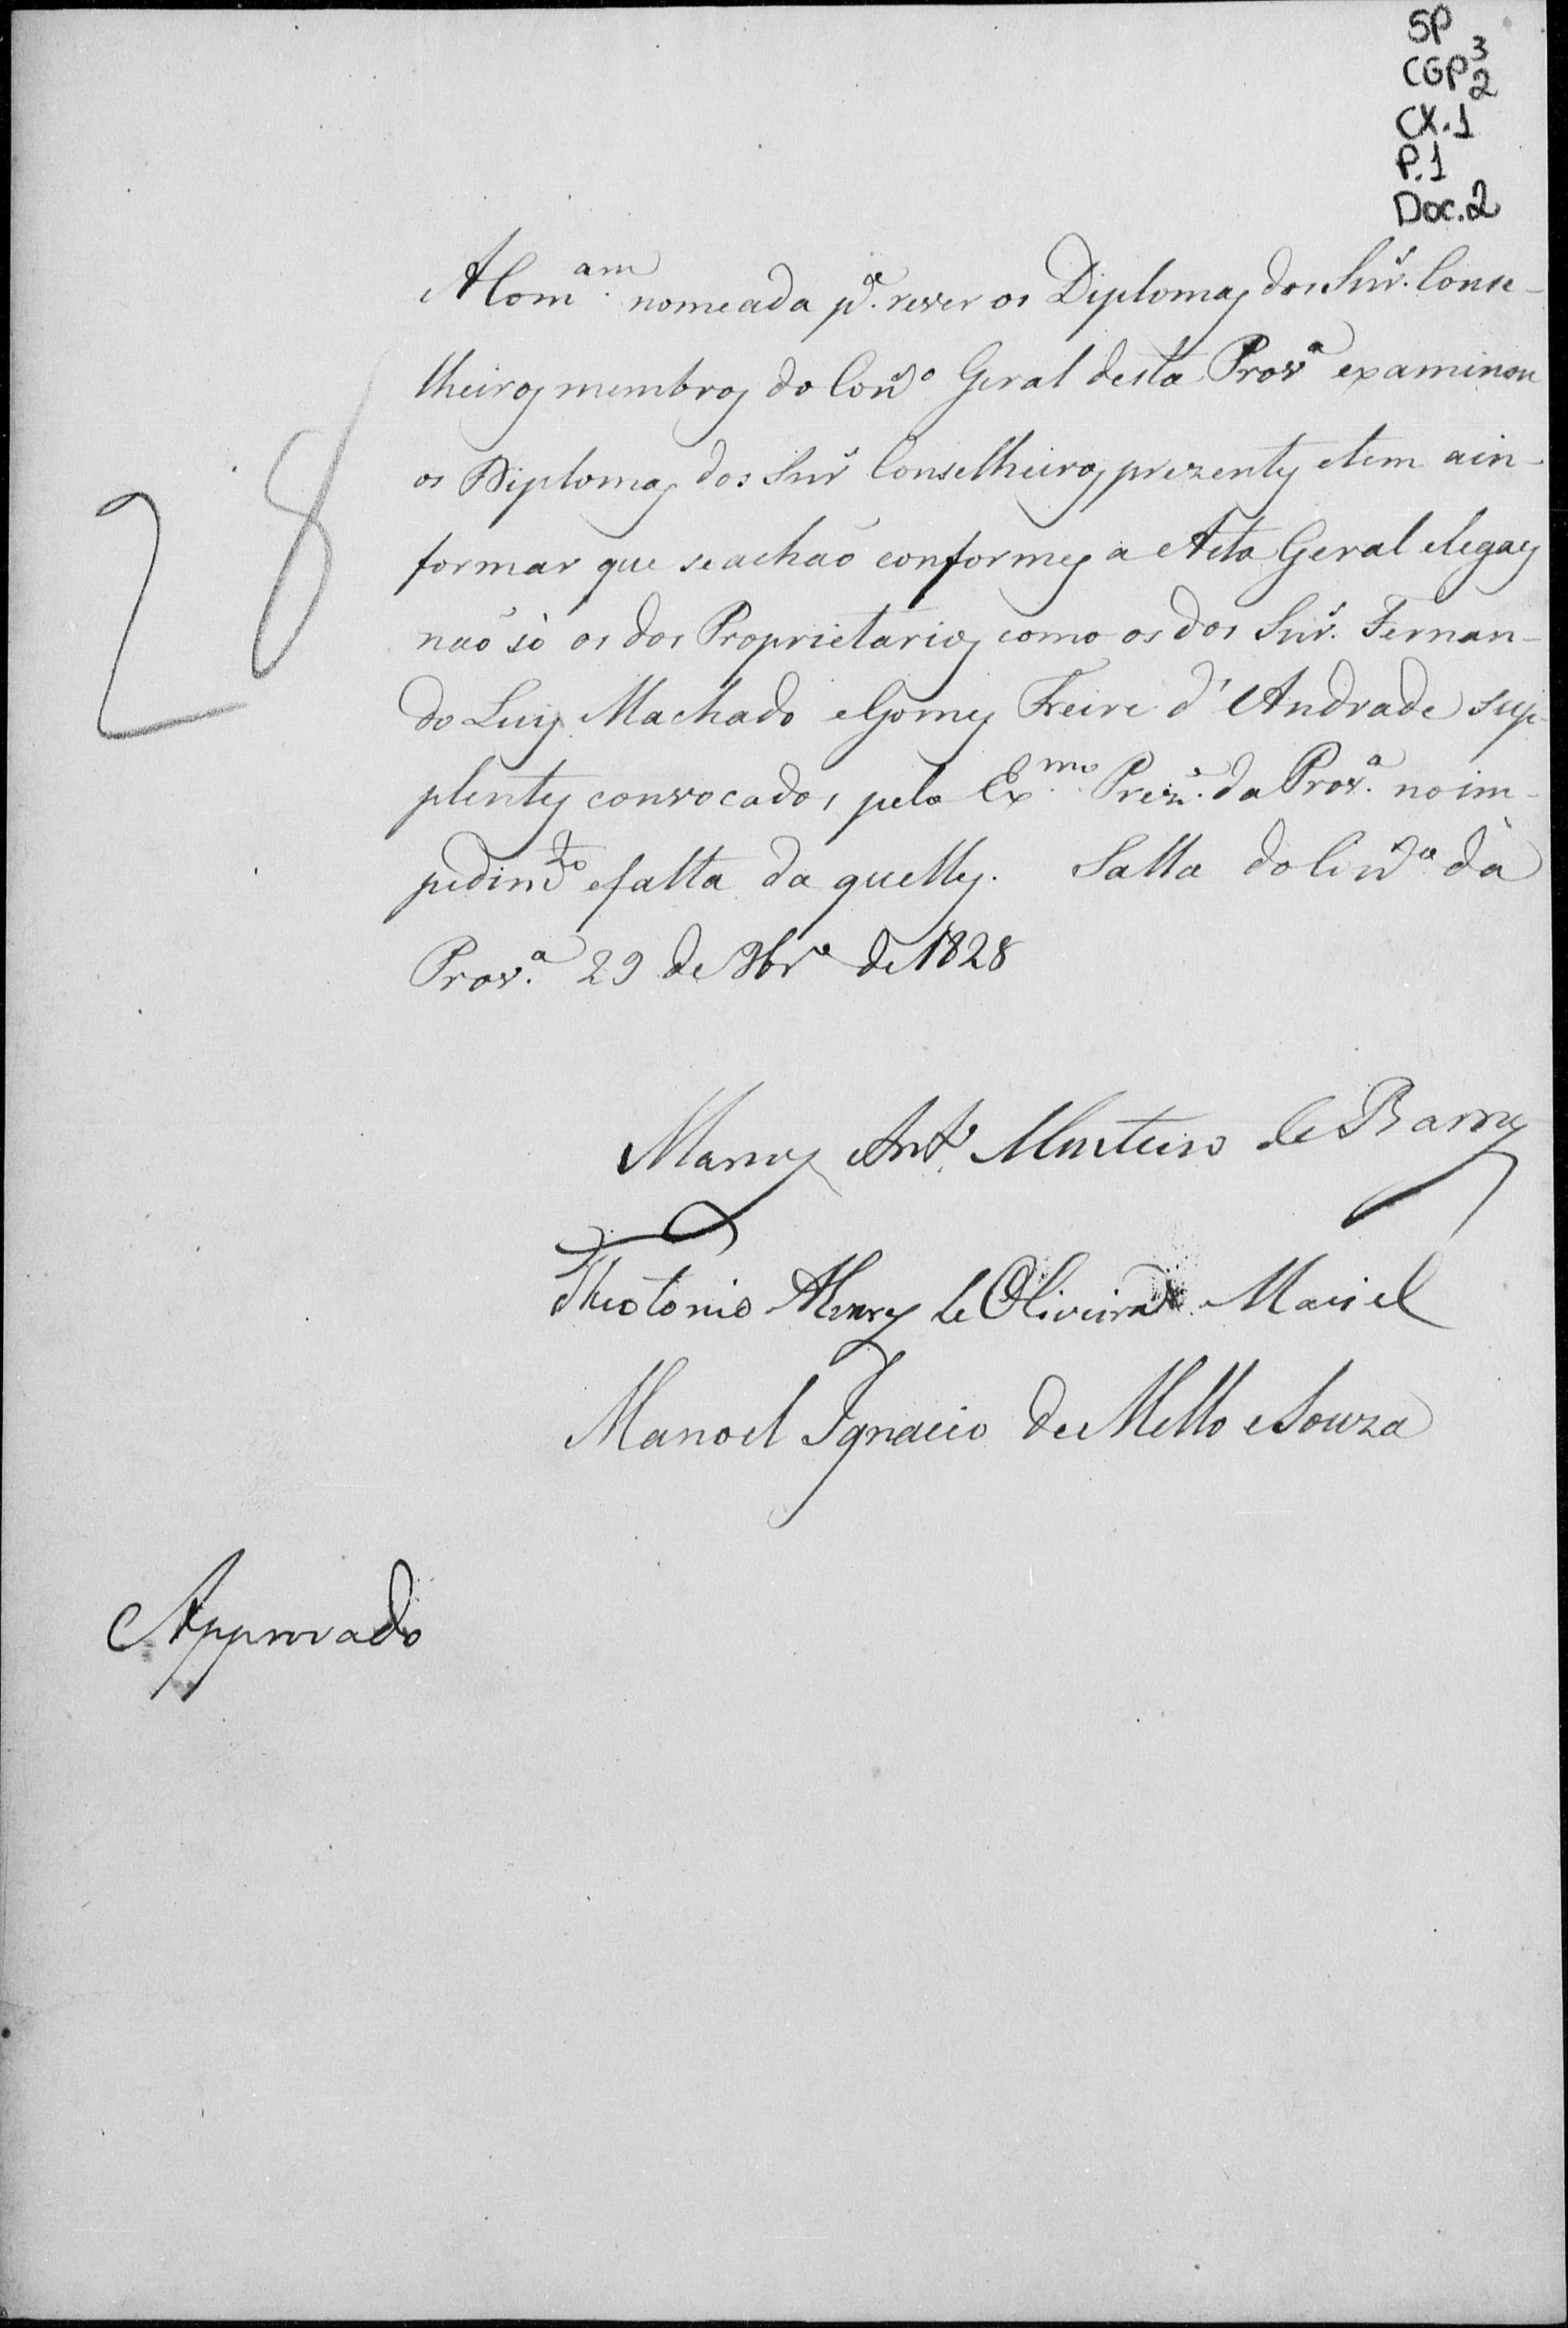 SP
CGP 3
2
CX.1
P.1
Doc.2
28
A Com.am nomeada p.a rever os Diplomas dos Snr.s Conse-
lheiros membros do Cons.o Geral desta Prov.a examinou
os Diplomas dos Snr.s Conselheiros prezentes e tem a in-
formar que se achaõ conformes a Acta Geral e legaes
naõ sò os dos Proprietarios como os dos Snr.s Fernan-
do Luis Machado e Gomes Freire d'Andrade sup-
plentes convocados pelo Ex.mo Prez.e da Prov.a no im-
pedim.to e falta da quelles. Salla do Cons.o dà
Prov.a 29 de 9br.o de 1828
Marcos Ant.o Monteiro de Barros
Theotonio Alvares de Oliveira Maciel
Manoel Ignacio de Mello e Souza
Approvado